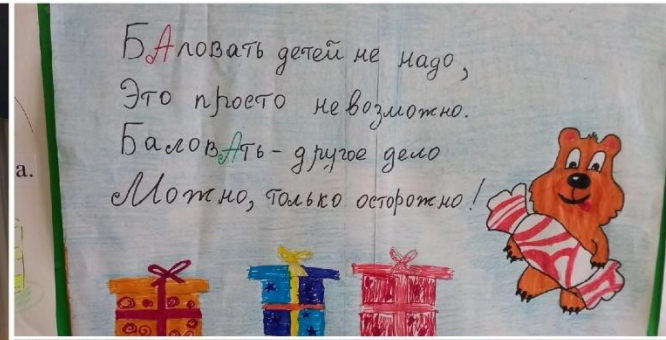 БАловать детей не надо,
Это просто невозможно.
БаловАть - другое дело
Можно, только осторожно!
а.